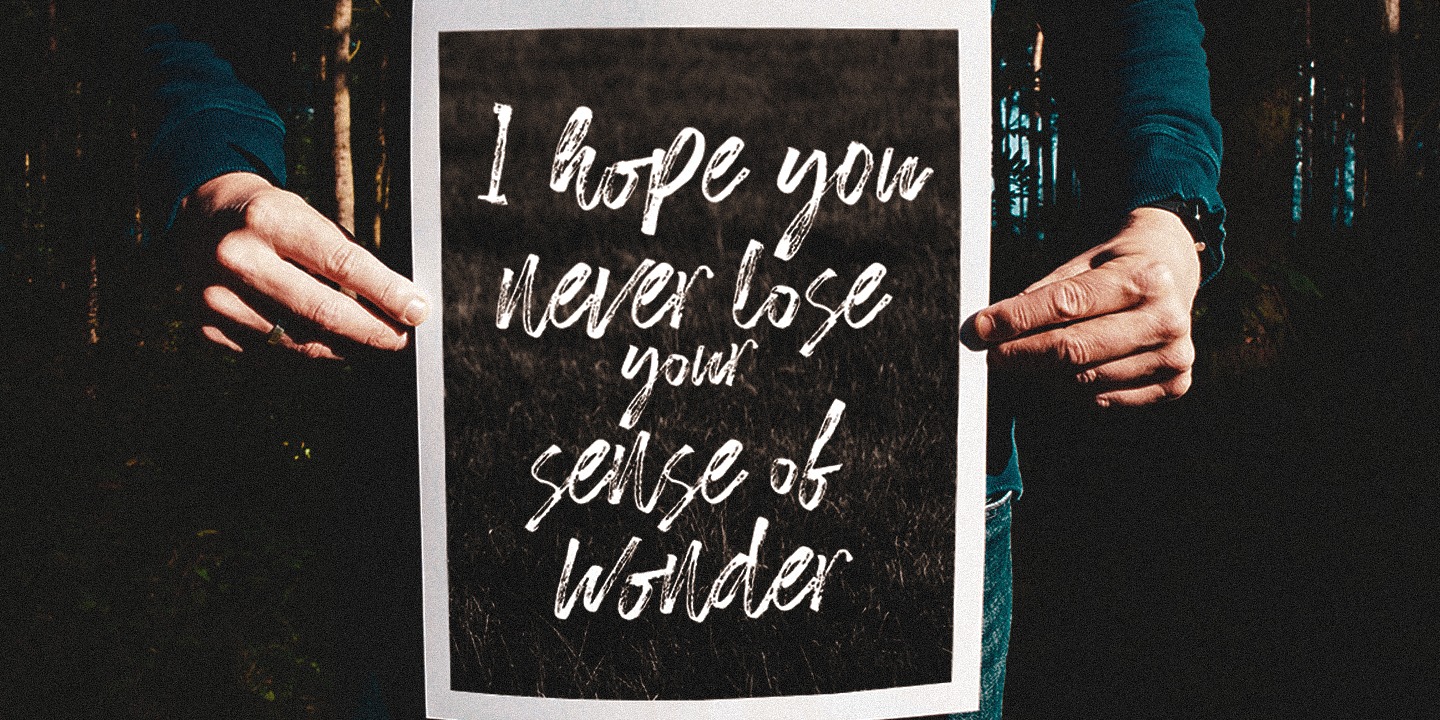 I hope you
never lose
your
sense of
wonder